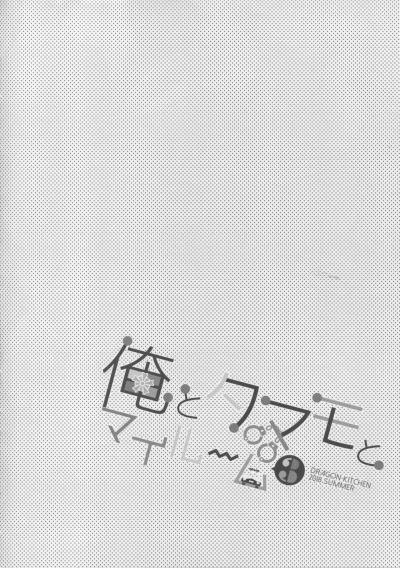 俺とタマモと
マイルーム8
DRAGON-KITCHEN
2018.SUMMER